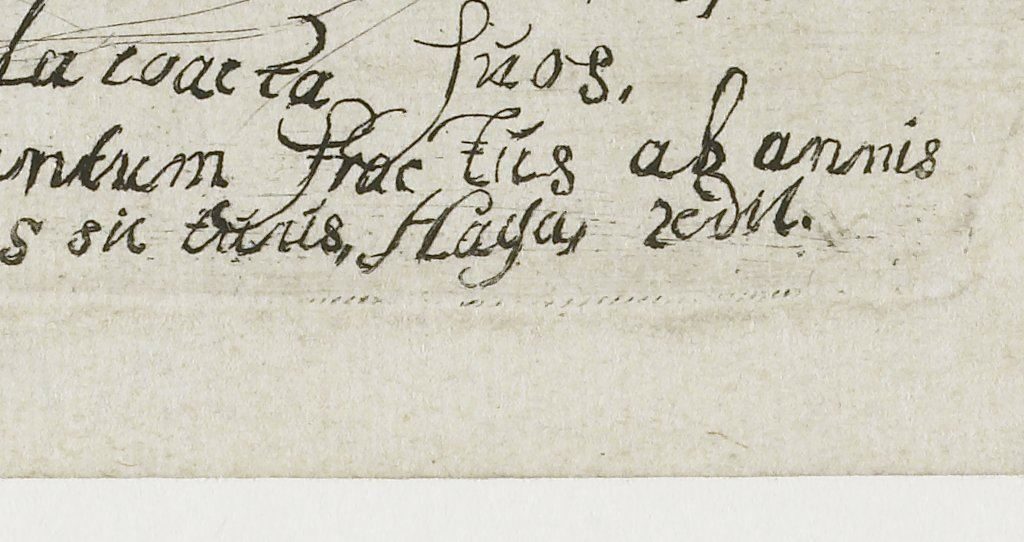 la coacta suos.
ntum fractus ab annis
s sit tuus, Haga, redit.